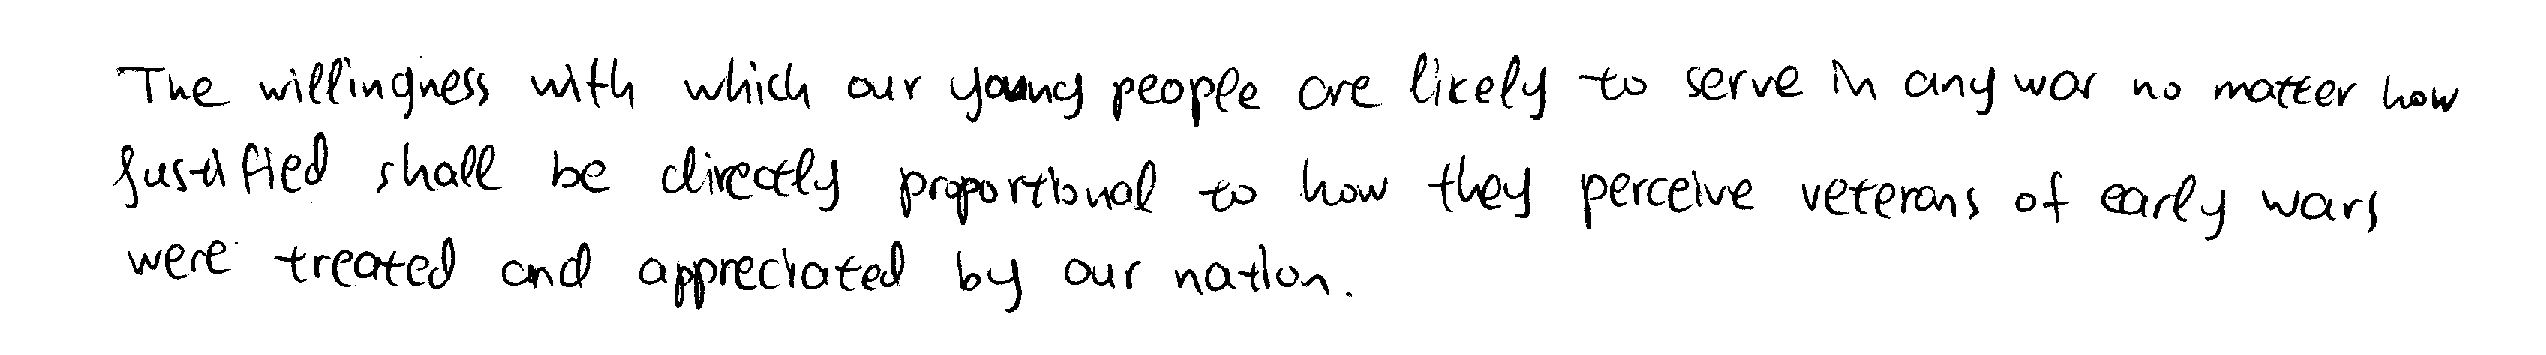 The willingness with which our young people are likely to serve in any war no matter how
justified shall be directly proportional to how they perceive veterans of early wars
were treated and appreciated by our nation.